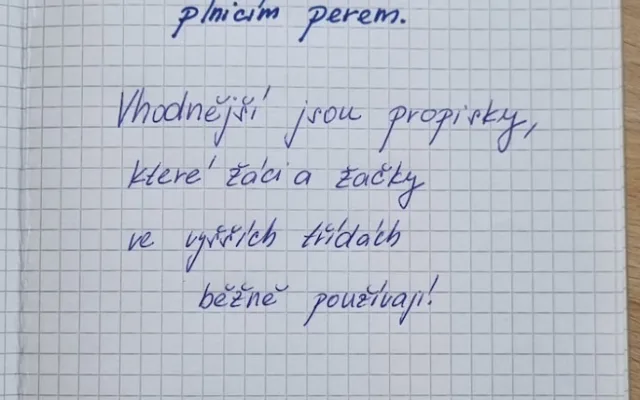 plnicím perem.
Vhodnější jsou propisky,
které žáci a žačky
ve vyšších třídách
běžně používají!